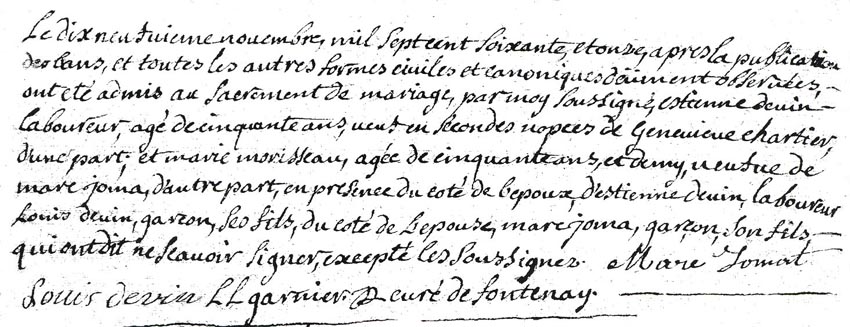 Le dix neuvieme novembre, mil sept cent soixante et onze, apres la publication
des bans, et toutes les autres formes civiles et canoniques düment observées,
ont eté admis au sacrement de mariage, par moy soussigné, estienne devin
laboureur, agé de cinquante ans, veuf en secondes nopces de Genevieve chartier,
d'une part; et marie morisseau, agée de cinquante ans, et demy, veufve de
marc joma, d'autre part, en presence du coté de l'epoux, d'estienne devin, laboureur
Louis devin, garçon, ses fils, du coté de l'epouse, marc joma, garçon, son fils
qui ont dit ne sçavoir signer, excepté les soussignez. Marc Jomat
Louis devin LL garnier curé de fontenay.